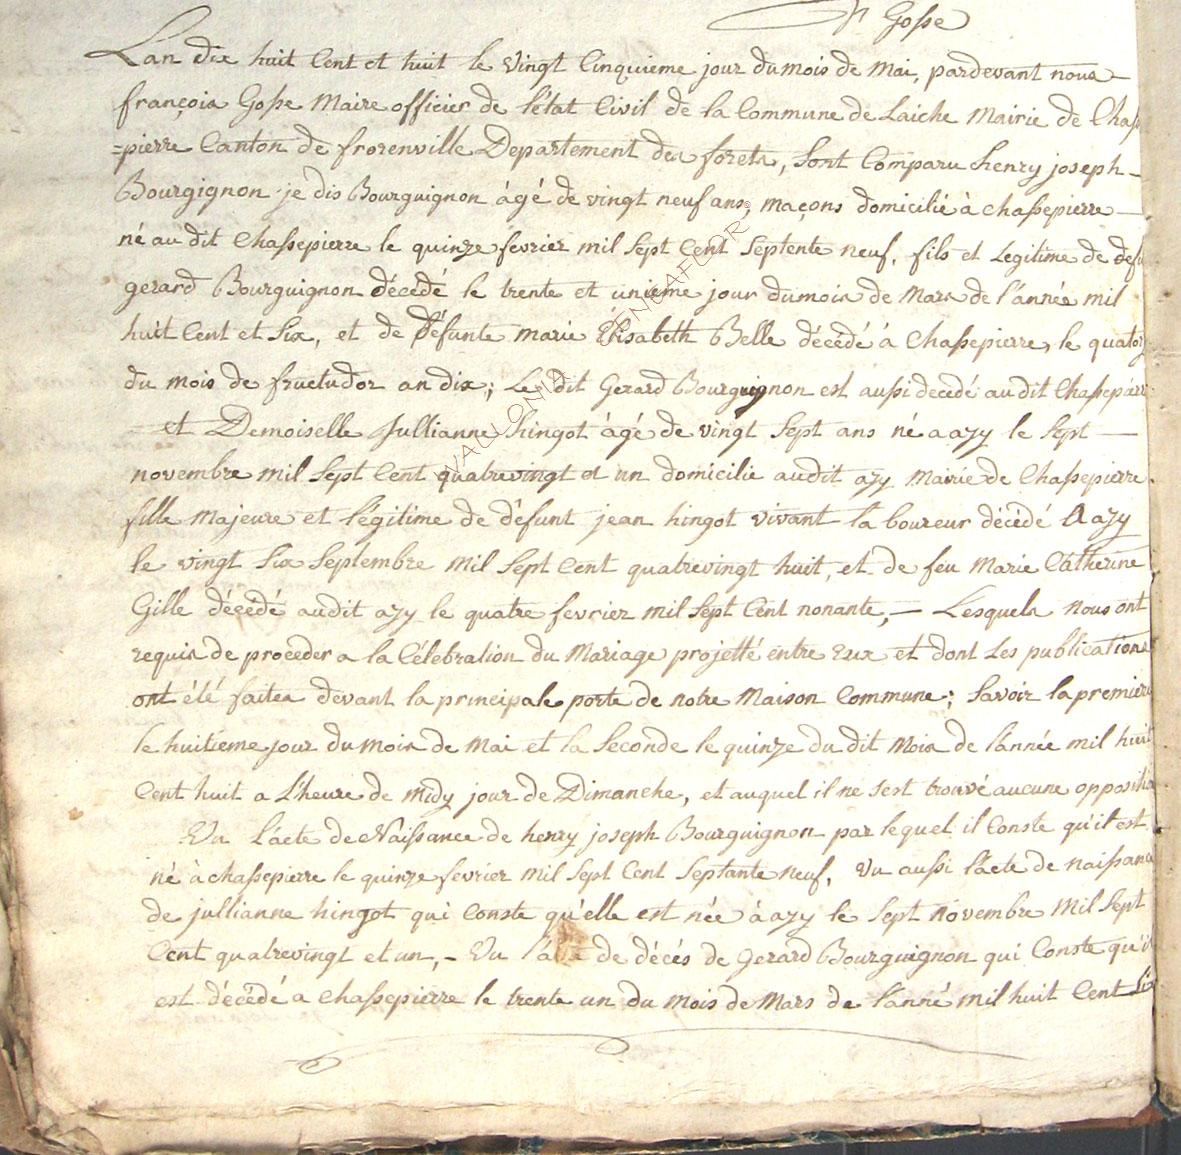 fr Gosse
L'an dix huit Cent et huit le vingt Cinquieme jour du mois de Mai, pardevant nous
françois Gosse Maire officier de l'état Civil de la Commune de Laiche Mairie de Chass
=pierre Canton de florenville Departement des forets, sont Comparu henry joseph
Bourgignon je dis Bourguignon âgé de vingt neuf ans, maçons domicilié à chassepierre
né au dit Chassepierre le quinze fevrier mil sept Cent Septente neuf, fils et Legitime de defu
gerard Bourguignon décédé le trente et unieme jour du mois de Mars de l'année mil
huit Cent et Six, et de Défunte marie Elisabeth Belle décédé à Chassepierre, le quatorz
du mois de fructudor an dix; Le dit Gerard Bourguignon est aussi decedé au dit Chassepierre
et Demoiselle Jullianne hingot âgé de vingt sept ans né a azy le sept
novembre mil sept Cent quatrevingt et un domicilie audit azy Mairie de Chassepierre
fille Majeure et légitime de défunt jean hingot vivant laboureur décédé A azy
le vingt six septembre mil sept Cent quatrevingt huit, et de feu Marie Catherine
Gille décédé audit azy le quatre fevrier mil sept Cent nonante, — Lesquels nous ont
requis de proceder a la Célebration du Mariage projetté entre Eux et dont Les publications
ont été faites devant la principale porte de notre Maison Commune; Savoir la premiere
le huitieme jour du mois de Mai et la seconde le quinze du dit Mois de l'année mil huit
Cent huit a L'heure de midy jour de Dimanche, et auquel il ne s'est trouvé aucune oppositio
Vu l'acte de Naissance de henry joseph Bourguignon par lequel il Conste qu'il est
né à chassepierre le quinze fevrier mil sept Cent Septante neuf, vu aussi l'acte de naissance
de jullianne hingot qui Conste qu'elle est née à azy le sept Novembre Mil sept
Cent quatrevingt et un, - Vu l'acte de décés de Gerard Bourguignon qui Conste qu'il
est décédé a Chassepierre le trente un du mois de Mars de l'anné mil huit Cent Six
WALLONIA
©ENGAFLOR